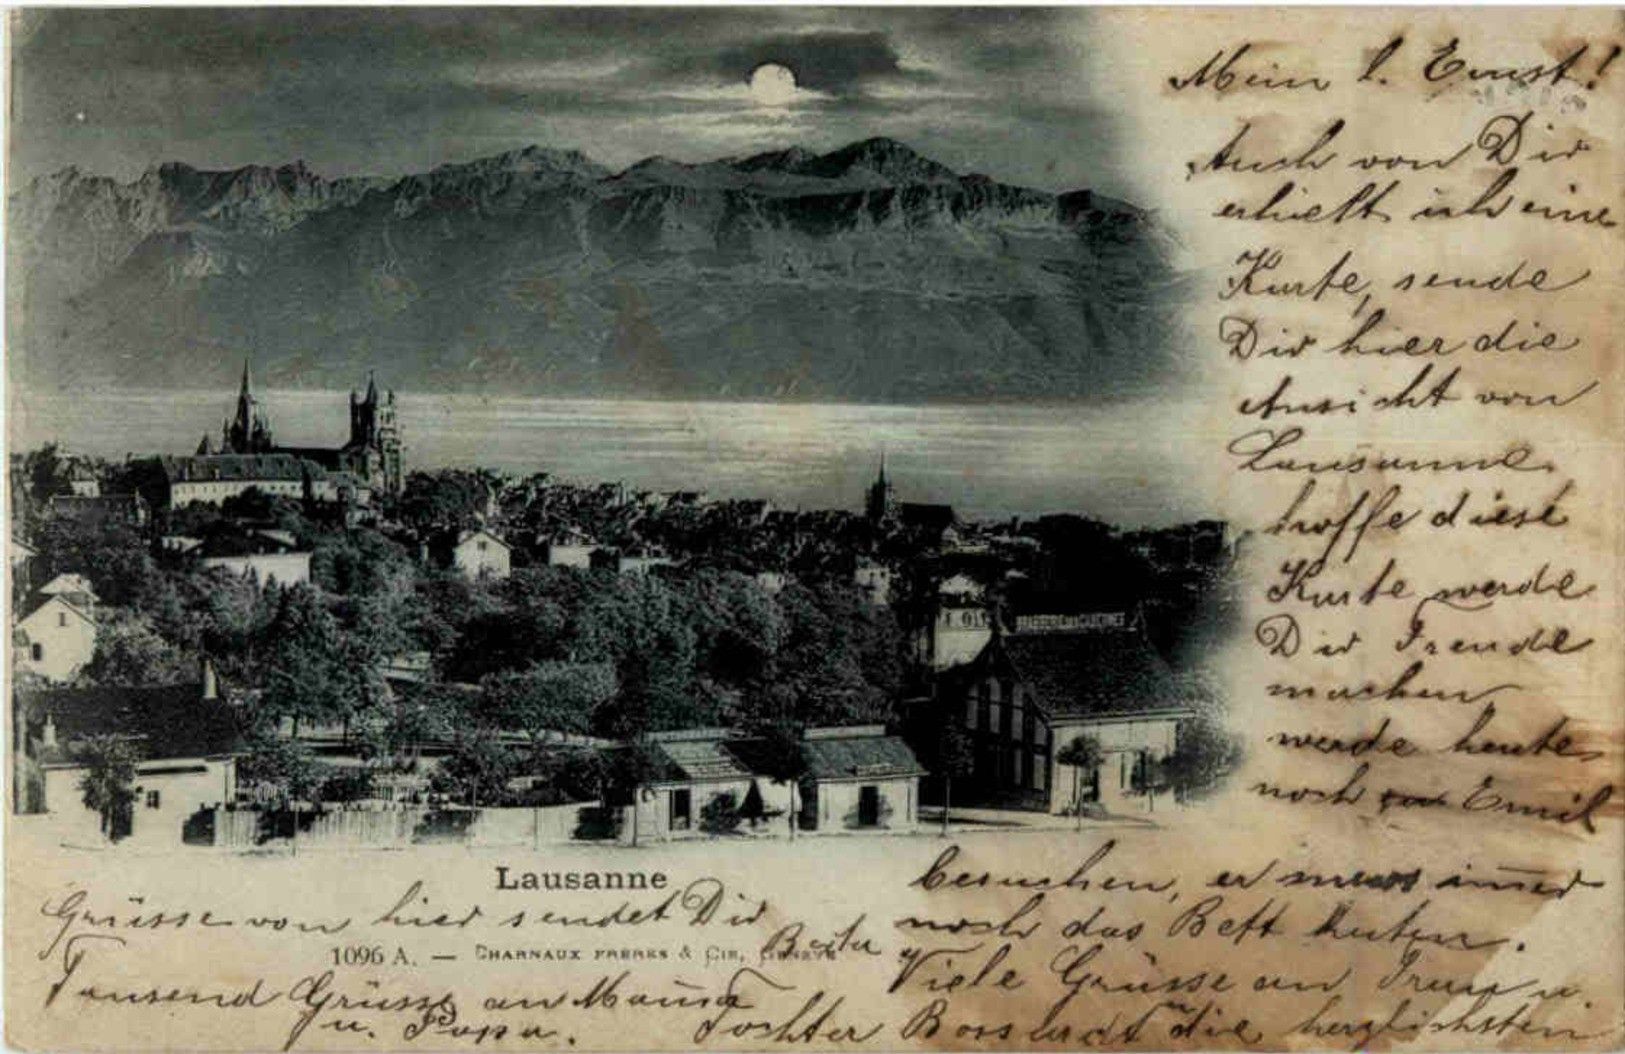 Mein l. Ernst!
Auch von Dir
erhielt ich eine
Karte, sende
Dir hier die
Ansicht von
Lausanne
hoffe diese
Karte werde
Dir Freude
machen
werde heute
noch Emil
besuchen, er muss im̄er
noch das Bett hüten.
Viele Grüsse an Frau u.
Tochter Bosserdt die herzlichsten
Grüsse von hier sendet Dir
Berta
Tausend Grüsse an Mam̄a
u. Papa.
BRASSERIE DES CASERNES
Lausanne
1096 A. — CHARNAUX FRÈRES & CIE, GENÈVE